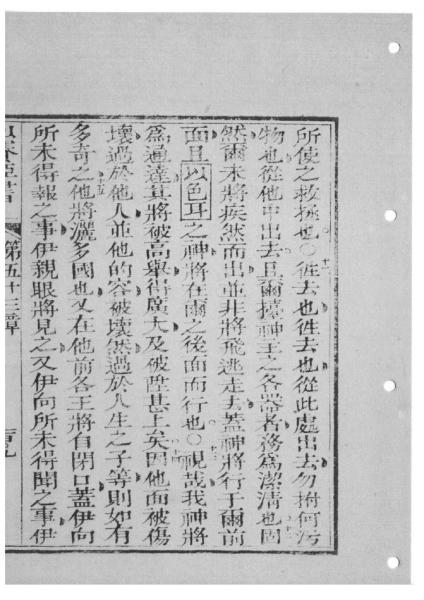 所使之救拯也〇徃去也徃去也從此處出去勿拊何污
物也從他中出去且爾擡神主之各器者務爲潔清也因
然爾未將疾然而出並非將飛逃走去蓋神將行于爾前
面且以色耳之神將在爾之後面而行也〇視哉我神將
爲通達其將被高舉得廣大及破陞甚上矣因他面被傷
壞過於他人並他的容被壞然過於人生之子等則如有
多奇之他將灑多國也又在他前各王將自閉口蓋伊向
所未得報之事伊親眼將見之又伊向所未得聞之事伊
第五十三章